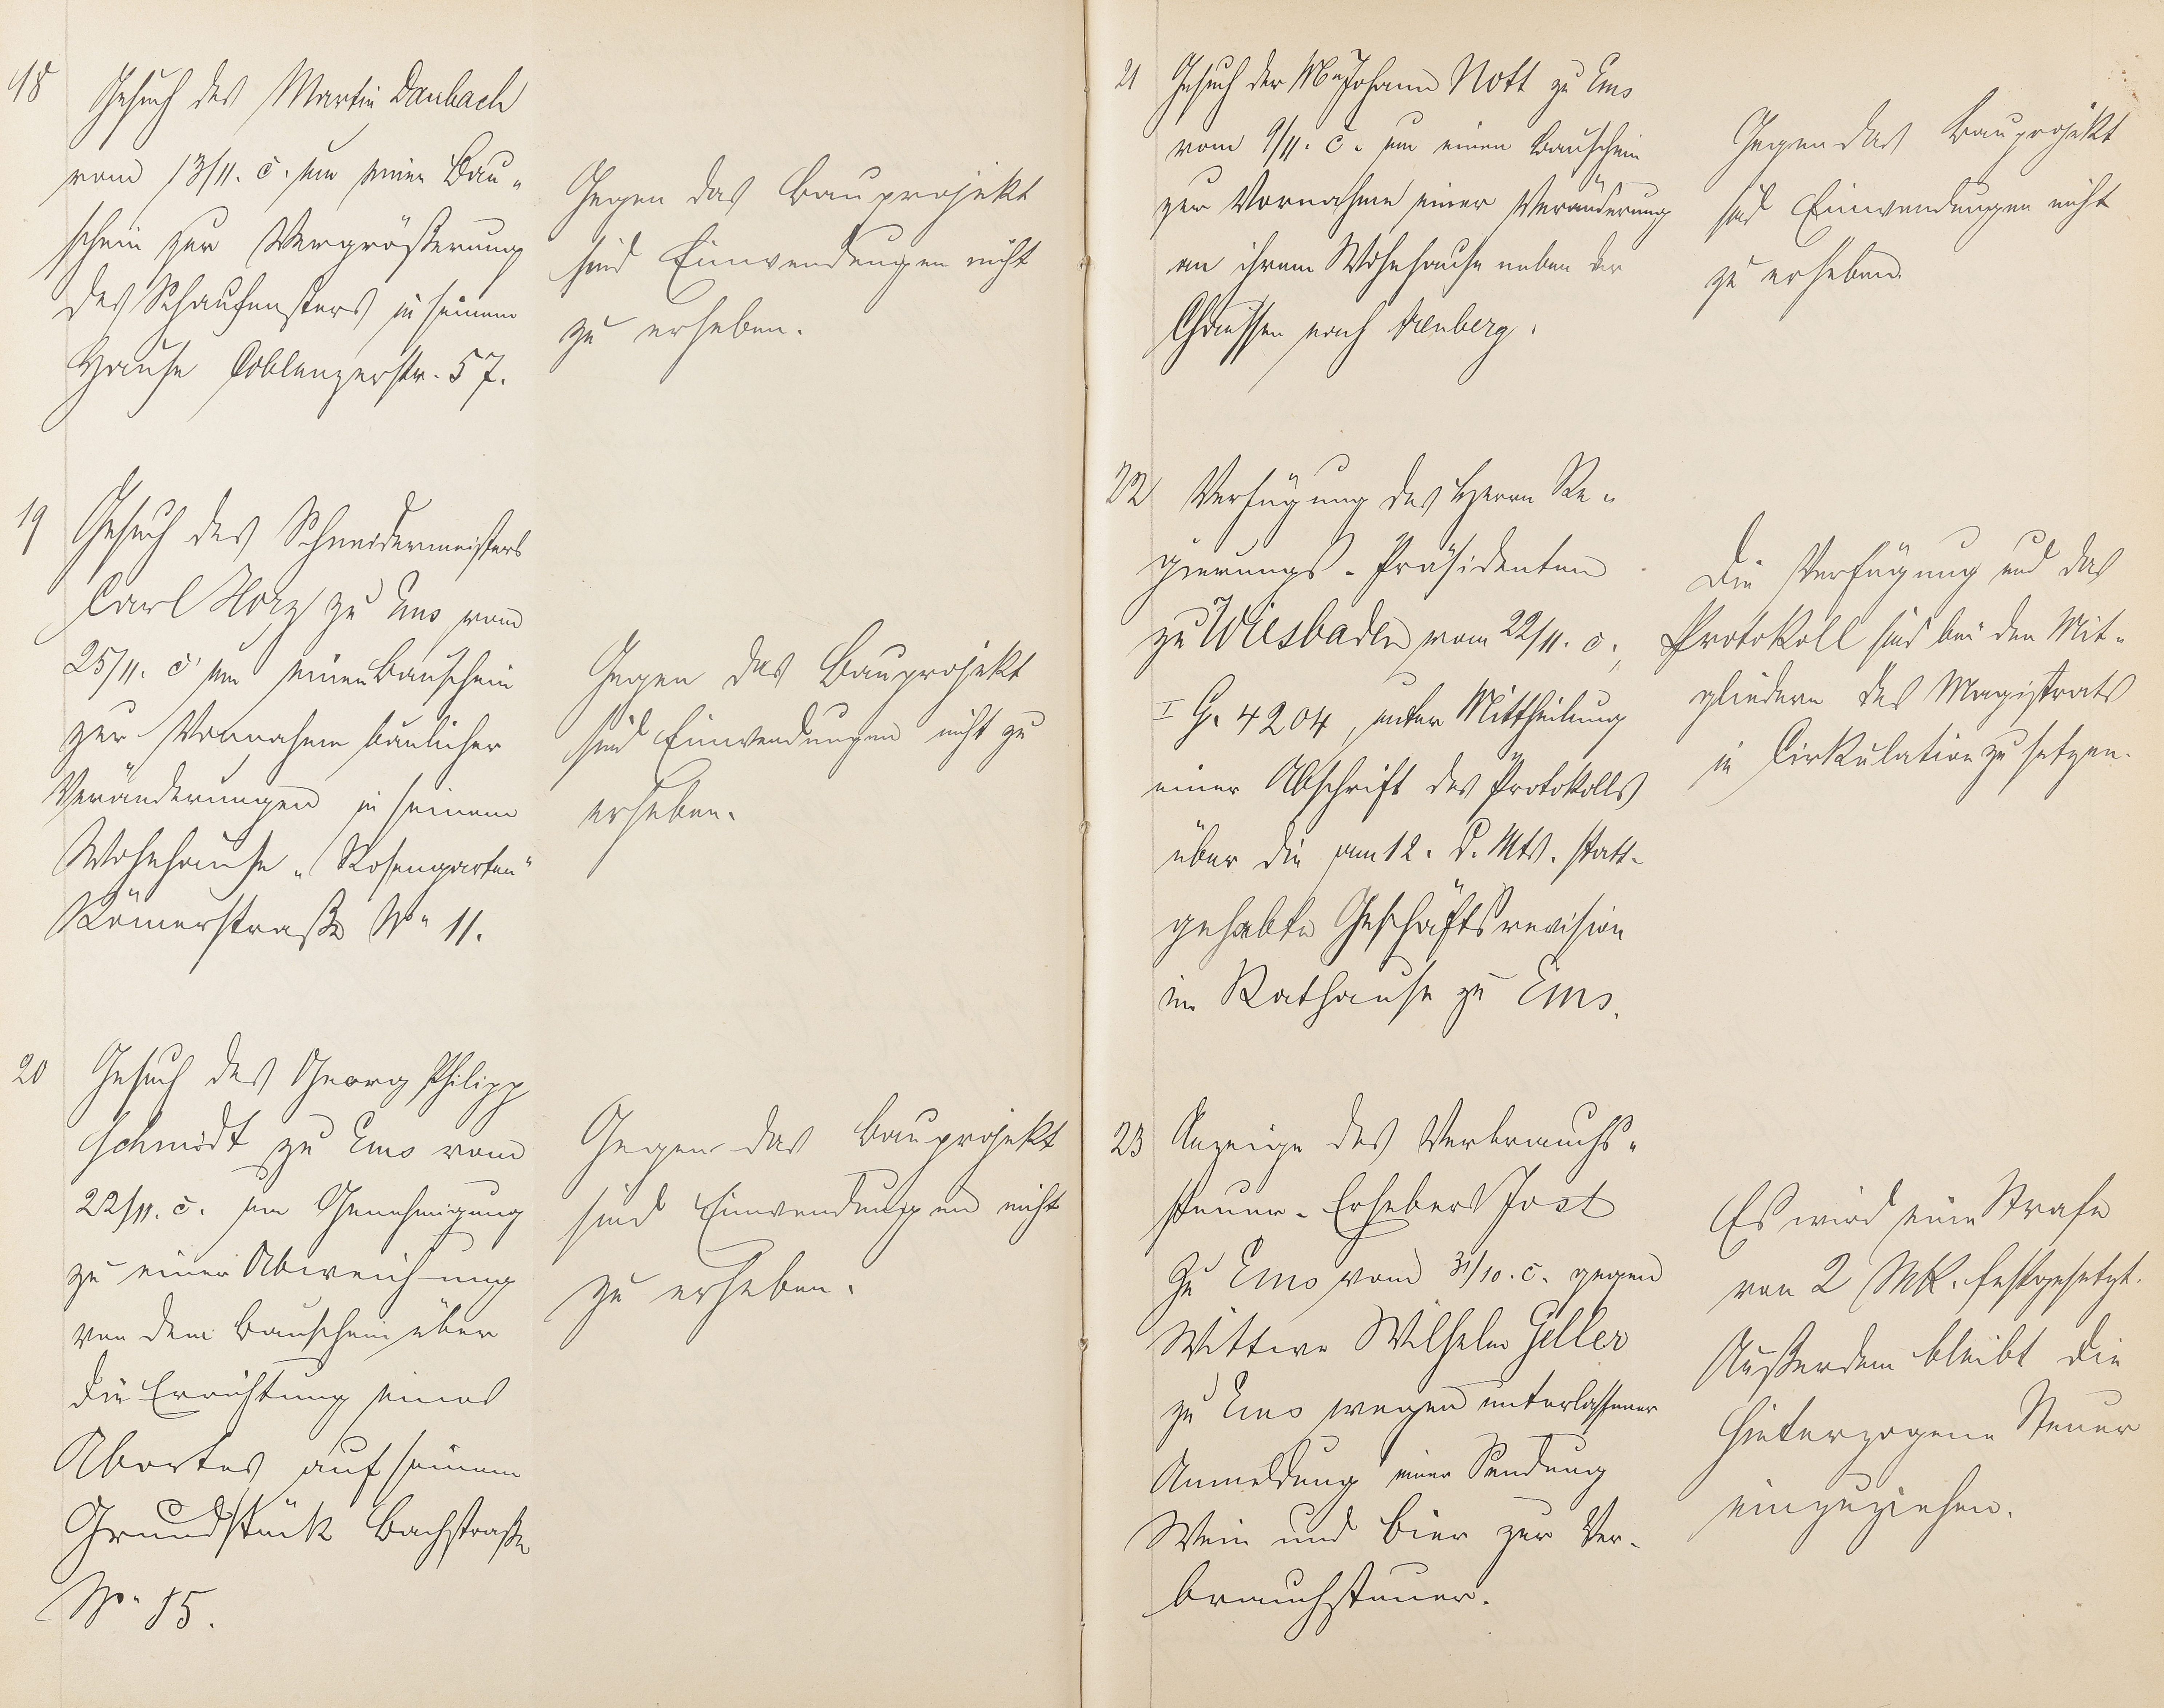 18
Gesuch des Martin Daubach
vom 13/11. c. um einen Bau-
schein zur Vergrößerung
des Schaufensters in seinem
Hause Coblenzerstr. 57.
Gegen das Bauprojekt
sind Einwendungen nicht
zu erheben.
19
Gesuch des Schneidermeisters
Carl zu Ems vom
25/11. c. um einen Bauschein
zur Vornahme baulicher
Veränderungen in seinem
Wohnhause „Rosengarten“
Römerstraße No 11.
Gegen das Bauprojekt
sind Einwendungen nicht zu
erheben.
20
Gesuch des Georg Philipp
Schmidt zu Ems vom
22/11. c. um Genehmigung
zu einer Abweichung
von dem Bauschein über
die Errichtung eines
Abortes auf seinem
Grundstück Bachstraße
No 15.
Gegen das Bauprojekt
sind Einwendungen nicht
zu erheben.
21
Gesuch der Johann Nott zu Ems
vom 9/11. c. um einen Bauschein
zur Vornahme einer Veränderung
an ihrem Wohnhause neben der
Chaussee nach
Gegen das Bauprojekt
sind Einwendungen nicht
zu erheben.
22
Verfügung des Herrn Re-
gierungs-Präsidenten
zu Wiesbaden vom 22/11. c.,
I G. 4204, unter Mittheilung
einer Abschrift des Protokolls
über die am 12. d. Mts. statt-
gehabte Geschäftsrevision
im Rathause zu Ems.
Die Verfügung und das
Protokoll sind bei den Mit-
gliedern des Magistrats
in Cirkulation zu setzen.
23
Anzeige des Verbrauchs-
steuer-Erhebers Jost
zu Ems vom 31/10. c. gegen
Wittwe Wilhelm Geller
zu Ems wegen unterlassener
Anmeldung einer Sendung
Wein und Bier zur Ver-
brauchsteuer.
Es wird eine Strafe
von 2 Mk. festgesetzt.
Außerdem bleibt die
hinterzogene Steuer
einzuziehen.